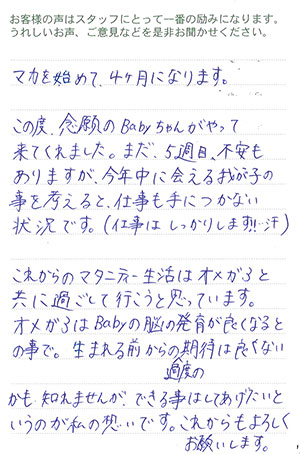 お客様の声はスタッフにとって一番の励みになります。
うれしいお声、ご意見などを是非お聞かせください。
マカを始めて、4ヶ月になります。
この度、念願のBabyちゃんがやって
来てくれました。まだ、5週目、不安も
ありますが、今年中に会える我が子の
事を考えると、仕事も手につかない
状況です。(仕事はしっかりします!!…汗)
これからのマタニティー生活はオメガ3と
共に過ごして行こうと思っています。
オメガ3はBabyの脳の発育が良くなると
の事で。生まれる前からの期待は良くない
過度の
かも知れませんが、できる事はしてあげたいと
いうのが私の想いです。これからもよろしく
お願いします。